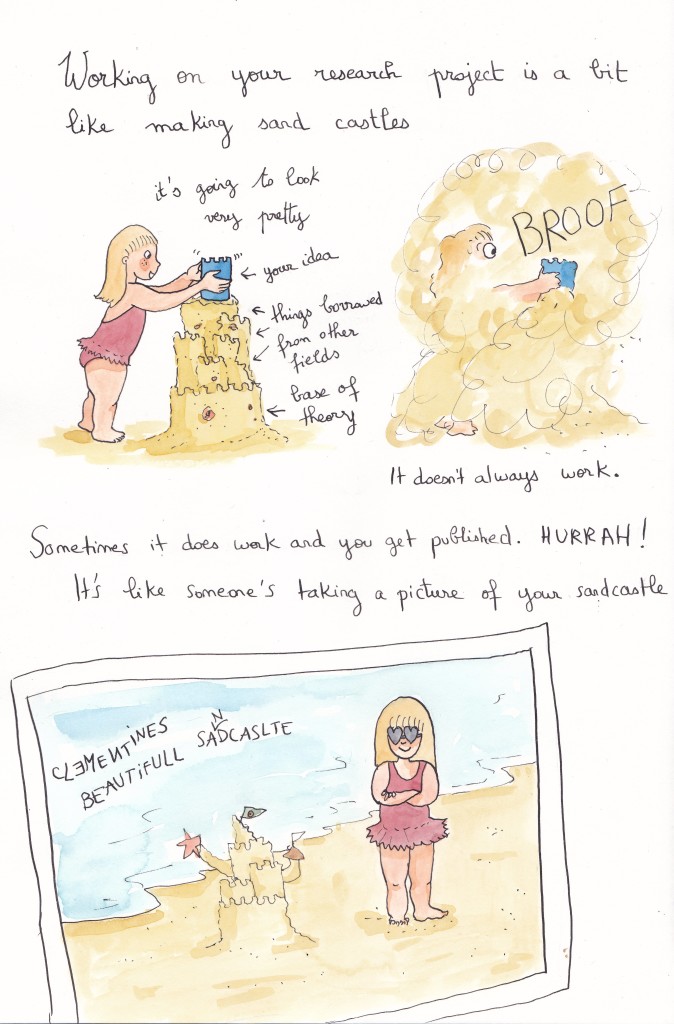 Working on your research project is a bit
like making sand castles
it's going to look
very pretty
your idea
things borrowed
from other
fields
base of
theory
BROOF
It doesn't always work.
Sometimes it does work and you get published. HURRAH!
It's like someone's taking a picture of your sandcastle
CLEMENTINES
BEAUTIFULL SANDCASLTE